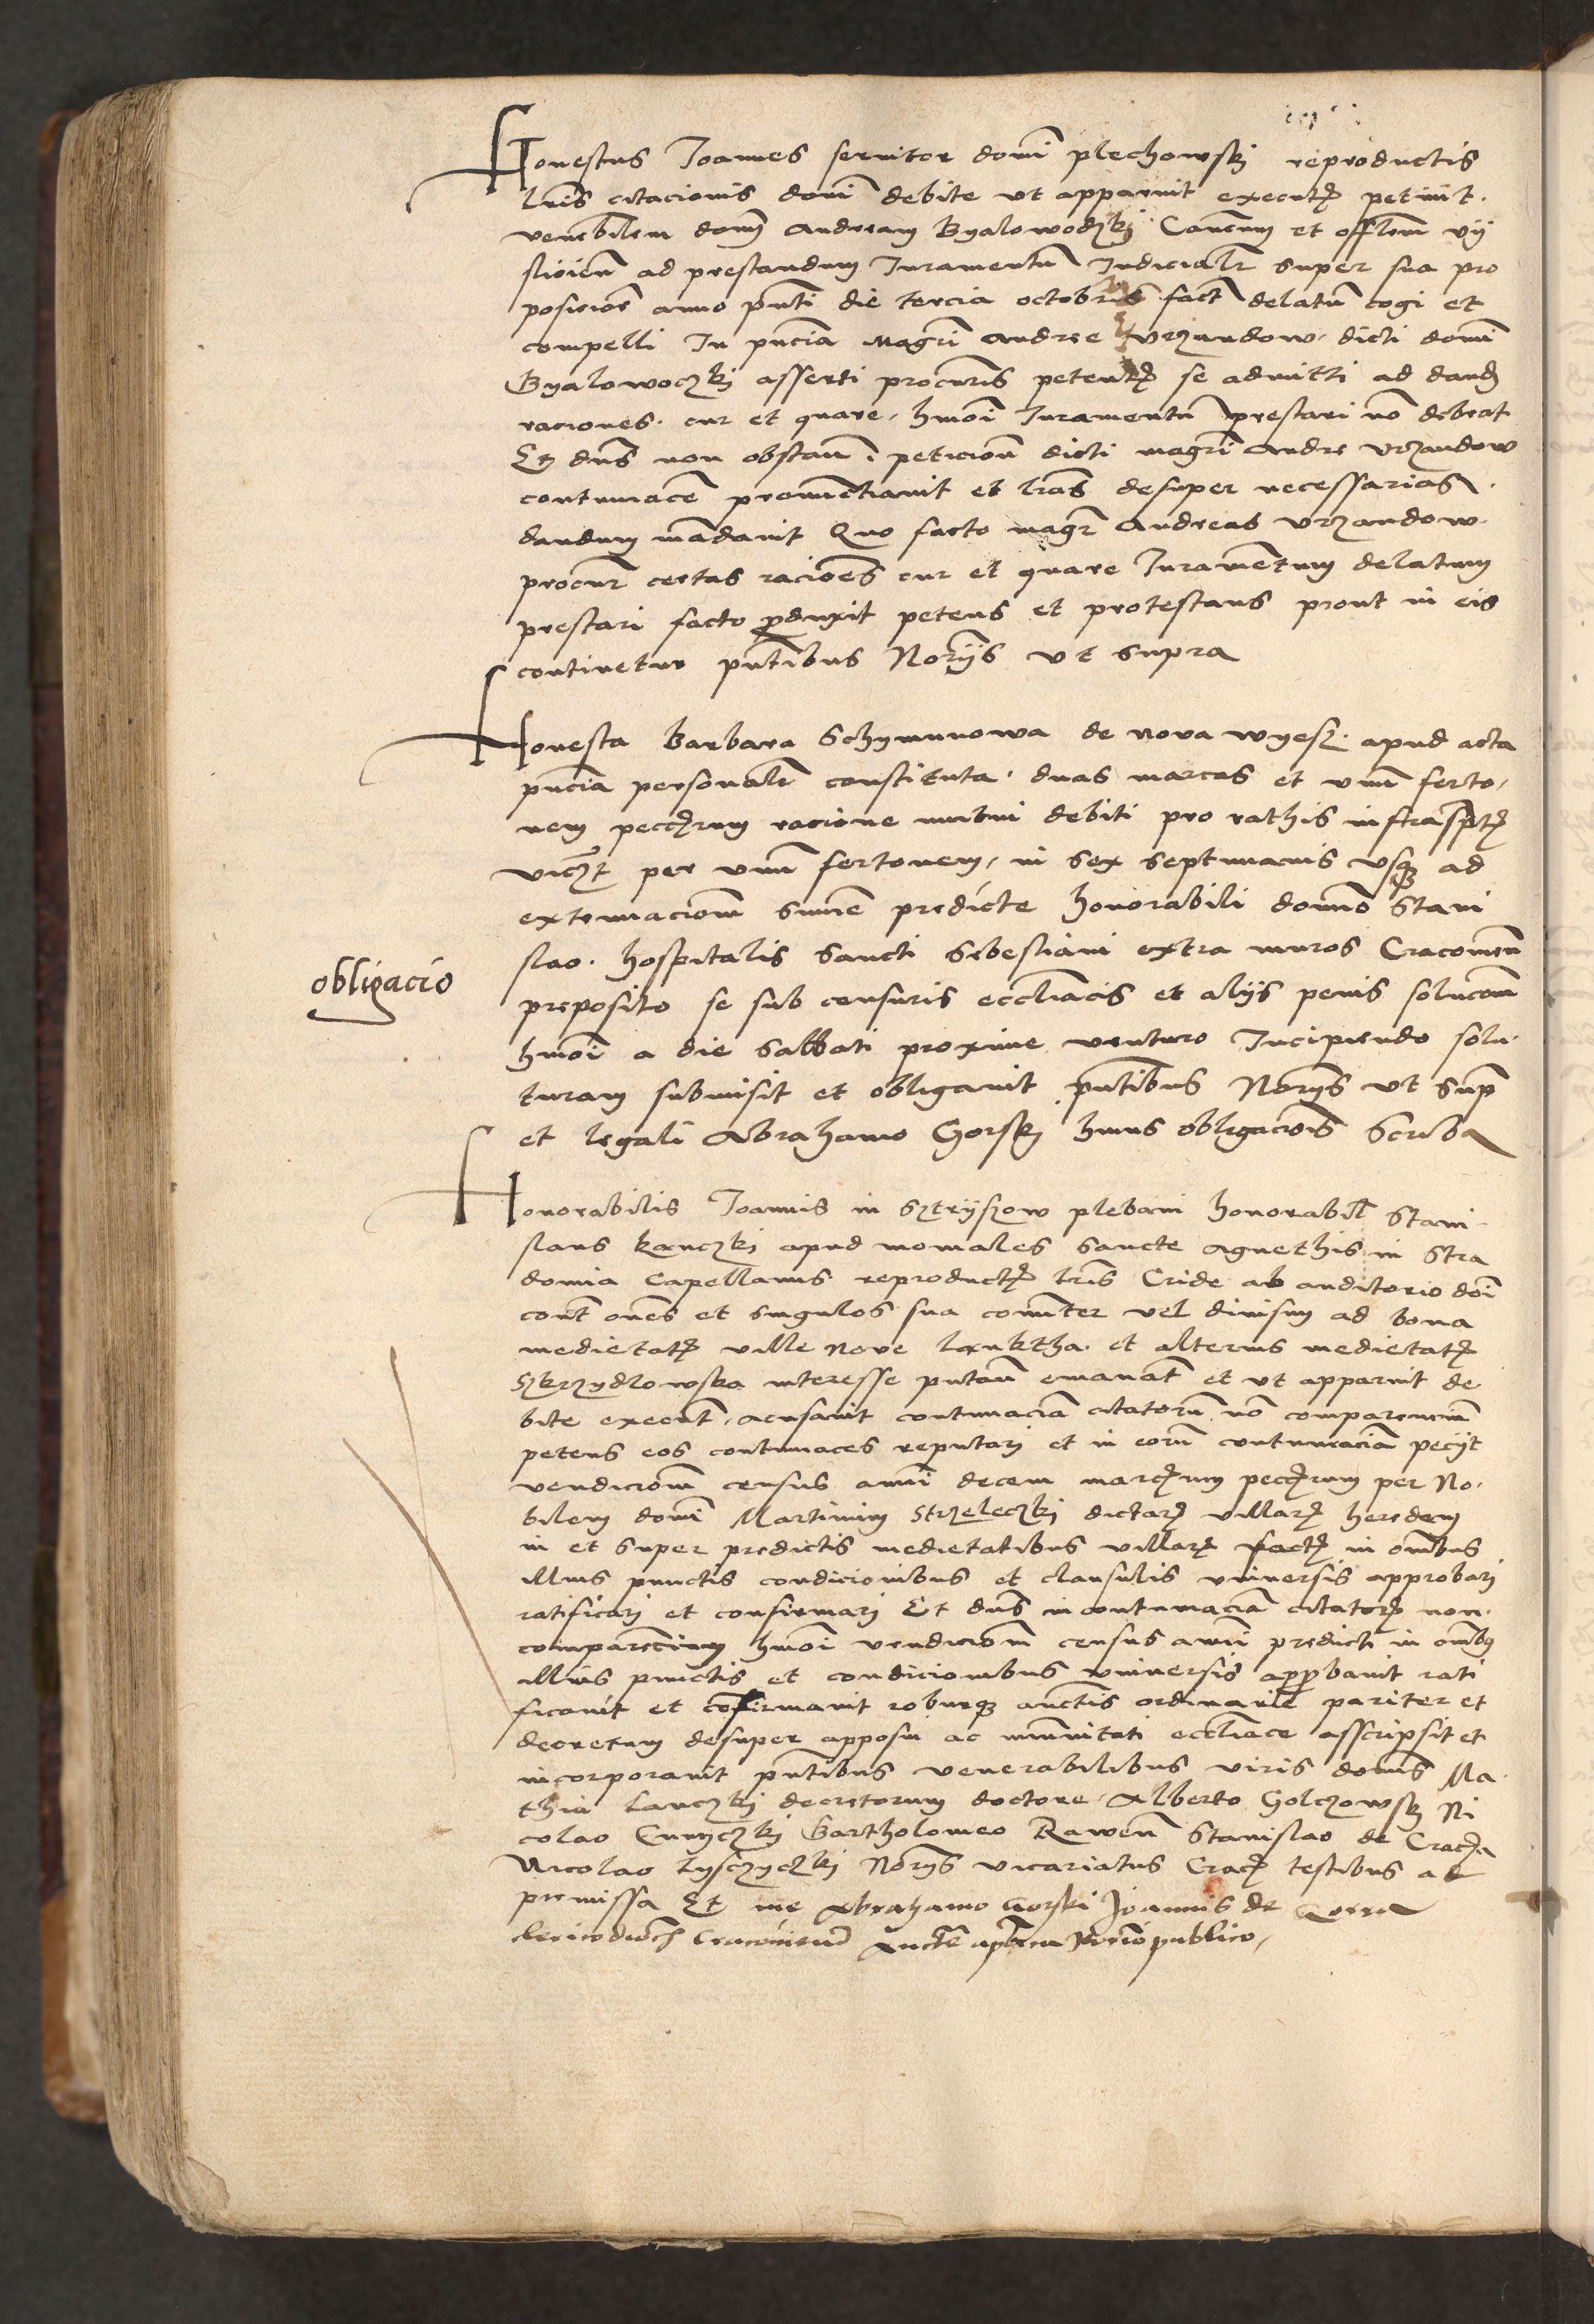 Honestus Joannes servitor domi plechowskj reproductis
lris citacionis domi debite vt apparuit executis petiuit
venerabilem dom Andream Byalowodzkj Cancum et offlem vy
slicien ad prestandum Juramentu Judicialr super sua pro
posicioe anno pnti die tercia octobris fact delatu cogi et
compelli In pncia Magri Andree vrzandow dicti domi
Byalowoczkj asserti procuris petentis se admitti ad dand
raciones cur et quare hmoi Juramentu prestari no debeat
Et dns non obstan peticion dicti magri Andre vrzandow
contumace pronunctiauit et lras desuper necessarias
dandum madauit Quo facto magr Andreas vrzandow
procur certas racioes cur et quare Juramentum delatum
prestari facto produxit petens et protestans prout in eis
continetur pntibus Norijs vt supra
Honesta Barbara Schymunowa de nova wyesz apud acta
pncia personalr constituta duas marcas et vnu ferto
nem peccarum racione mutui debiti pro rathis infrasptis
viczt per vnu fertonem in sex septimanis vsq ad
extenuaciom summe predicte honorabili domno Stani
slao hospitalis sancti sebestiani extra muros Cracouien
obligacio
preposito se sub censuris eccliacis et alijs penis solucom
hmoi a die sabbati proxime venturo Incipiendo solu
turam submisit et obligauit pntibus Norijs vt supr
et legali Abrahamo Gorskj huius obligaciois scriba
Honorabilis Joannis in Sztryszow plebani honorabil Stani
slaus Kanczkj apud moniales sancte Agnethis in Stra
domia Capellanus reproductis lris Cride ab auditorio doi
cont omes et singulos sua comuter vel diuisim ad bona
medietatis ville Nove Lanktha et alterius medietatis
Szkrzydlowska interesse putan emanat et vt apparuit de
bite execut acusauit contumacia citatoru no comparenciu
petens eos contumaces reputarj et in eoru contumacia pecijt
vendiciom census annui decem marcarum peccarum per No
bilem domi Martinum Strzeleczkj dictar villar heredem
in et super predictis medietatibus villar factis in omibus
illius punctis condicionibus et clausulis vniversis approbarj
ratificarj et confirmarj Et dns in contumacia citator non
comparencium hmoi vendiciom census annui predicti in omibus
illius punctis et condicionibus vniuersis approbauit rati
ficauit et confirmauit roburq auctis ordinarie pariter et
decretum desuper apposuit ac immunitati eccliace asscripsit et
incorporauit pntibus venerabilibus viris domis Ma
thia Lanczkj decretorum doctore Alberto Golczowskj Ni
colao Bartholomeo Rawen Stanislao de Craca
Nicolao Lyschyczkj Norijs vicariatus Crac testibus ad
premissa Et me Abrahamo Gorski Joannis de Gorra
clerico dioch Cracouien Aucte aplica Norio publico